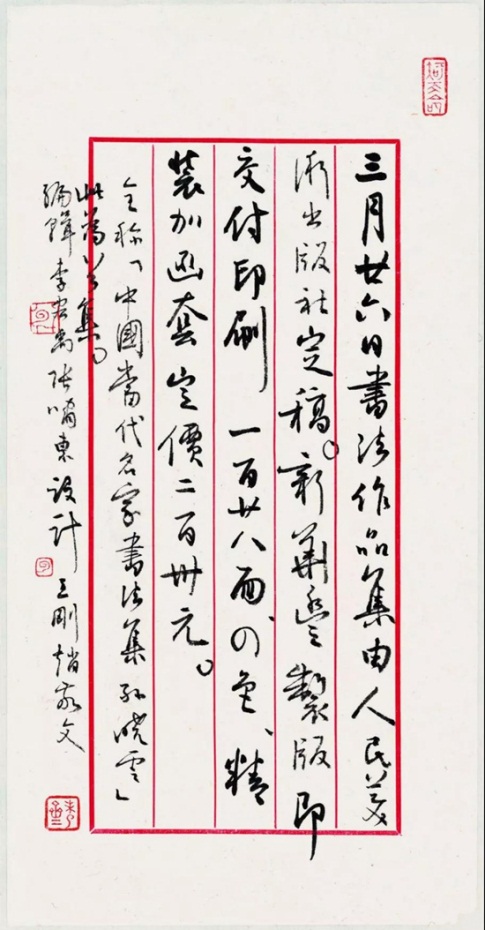 三月廿六日書法作品集由人民美
術出版社定稿。新華製版即
交付印刷 一百廿八面、四色、精
裝加函套定價二百卅元。
全称「中國當代名家書法集孙晓雲」
此為首集。
編輯 李宏禹 张啸東 設計 王剛 趙家文